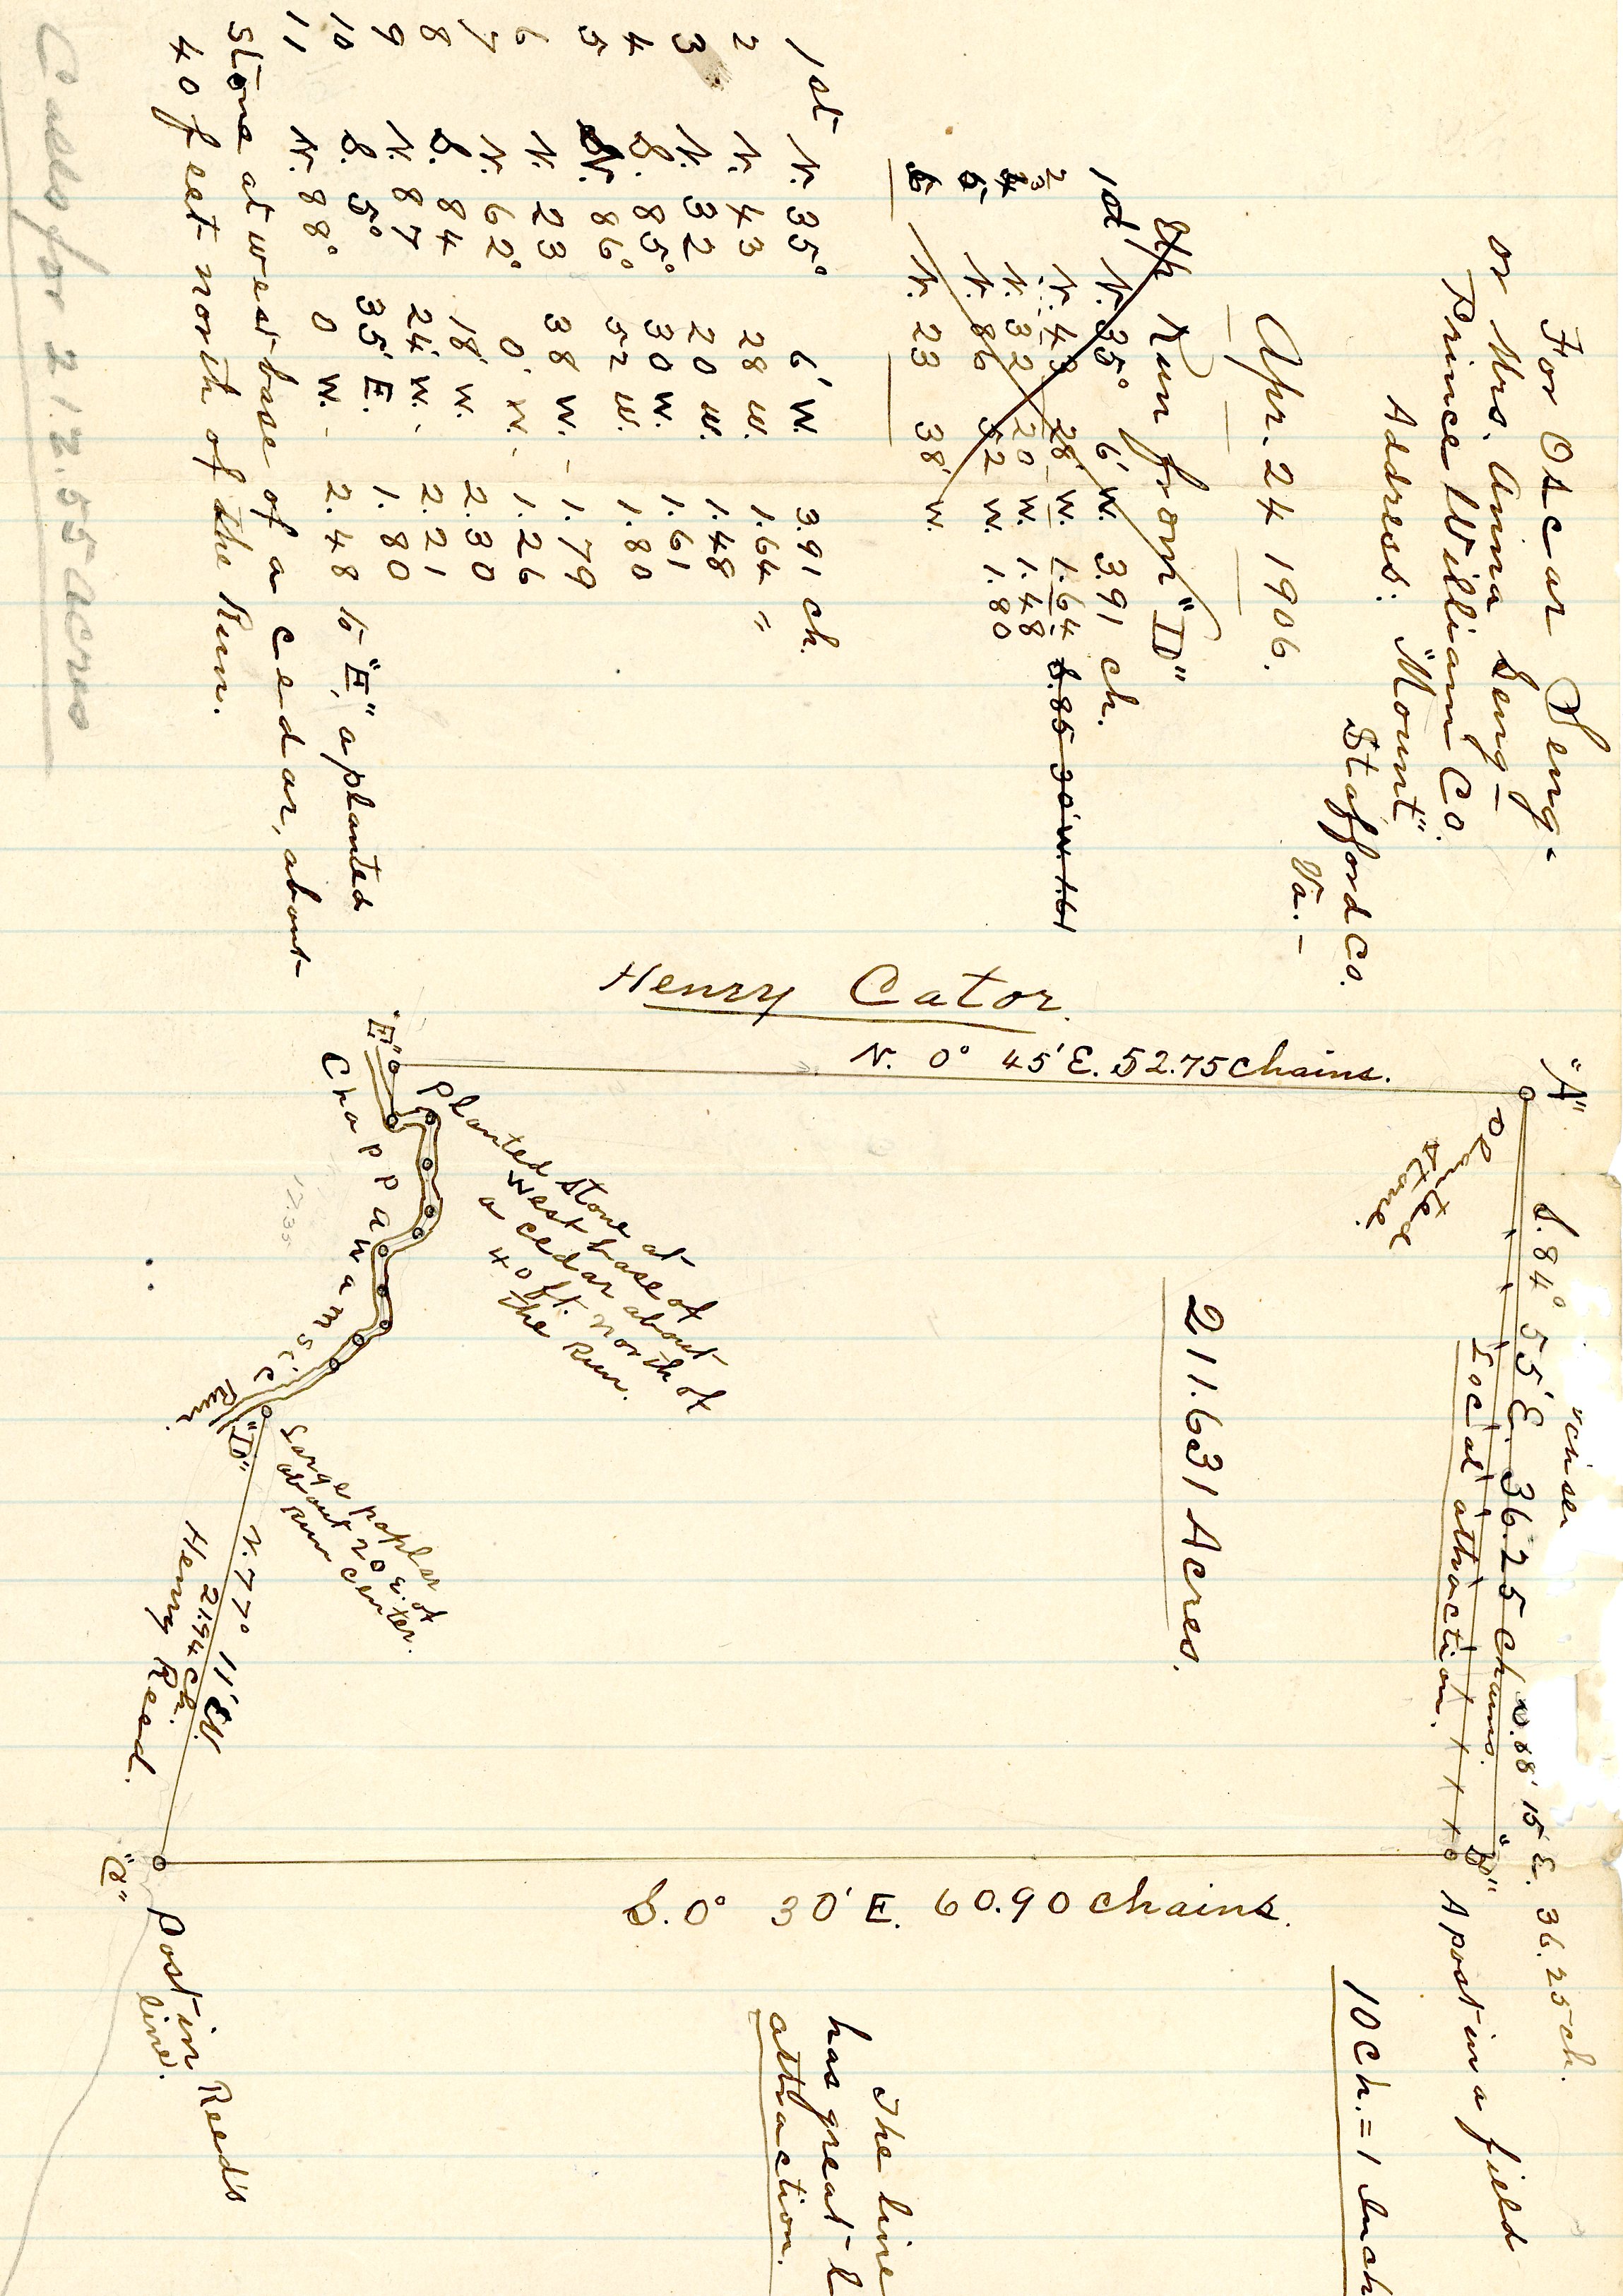 For Oscar Seng-
or Mrs. Anna Seng-
Prince William Co.
Address: "Mount"
Stafford Co.
Va.-
Apr. 24 1906.
Up Run from "D"
1st N. 35° 6' W. 3.91 ch.
2 N. 43 28 W. 1.64 S. 85 30' W. 1.61
3 N. 32 20 W. 1.48
5 N. 86 52 W. 1.80
6 N. 23 38 W.
1st N. 35° 6' W. 3.91 ch.
2 N. 43 28 W. 1.64 "
3 N. 32 20 W. 1.48
4 S. 85° 30 W. 1.61
5 N. 86° 52 W. 1.80
6 N. 23 38 W. - 1.79
7 N. 62° 0' W. 1.26
8 S. 84 18' W. 2.30
9 N. 87 24' W. - 2.21
10 S. 5° 35' E. 1.80
11 N. 88° 0 W. - 2.48 to "E" a planted
stone at west base of a cedar, about
40 feet north of the Run.
Calls for 212.55 acres
Henry Cator.
N. 0° 45' E. 52.75 Chains.
"A"
Planted
stone.
S. 84° 55' E. 36.25 Chains.
S. 88° 15' E. 36.25 ch.
Local attraction.
"B" A post in a field
10 Ch. = 1 Inch
211.631 Acres.
S. 0° 30' E. 60.90 Chains.
The line
has great l
attraction.
"E"
Planted stone at
west base of
a cedar about
40 ft. north of
the Run.
Chappawamsic
Run.
17.35
"D"
Large poplar at
about 20 ft.
Run center.
N. 77° 11' W.
21.94 ch.
Henry Reed.
"C"
Post in Reed's
line.